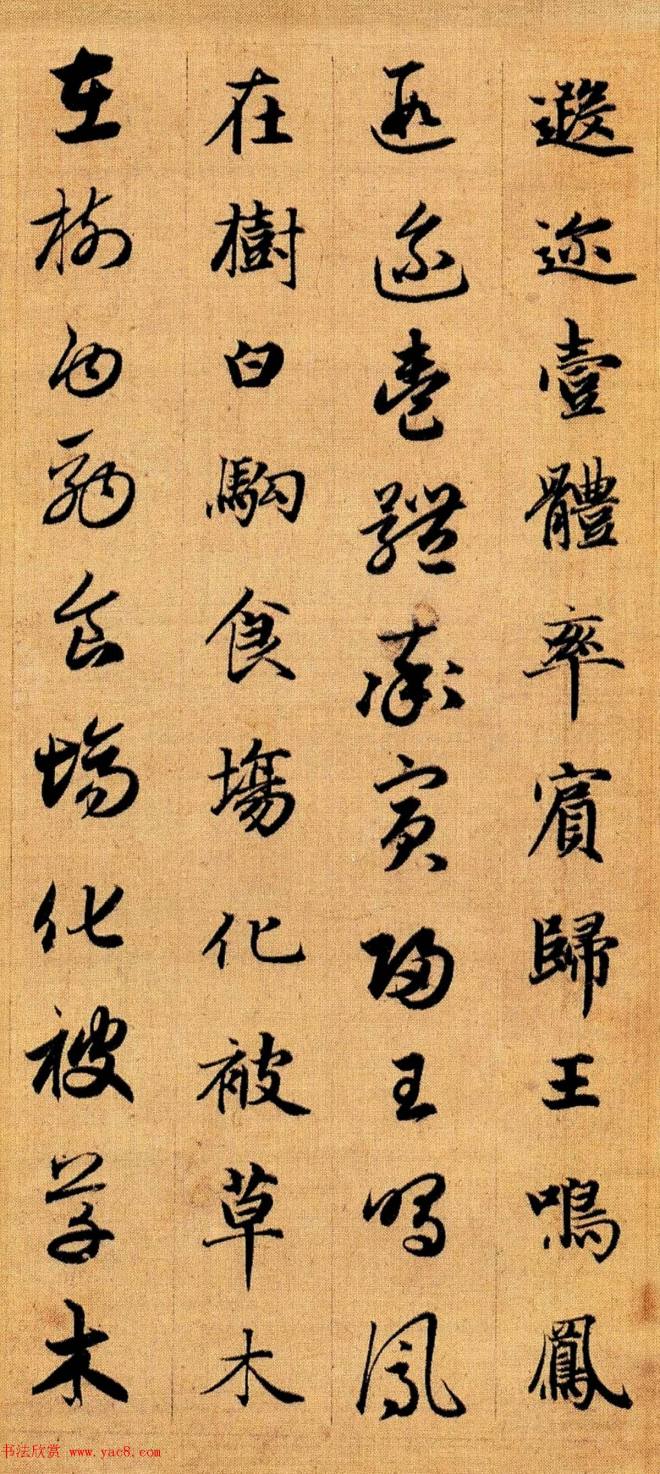 遐迩壹體率賓歸王鳴鳳
遐迩壹體率賓歸王鳴鳳
在樹白駒食場化被草木
在樹白駒食場化被草木
书法欣赏 www.yac8.com